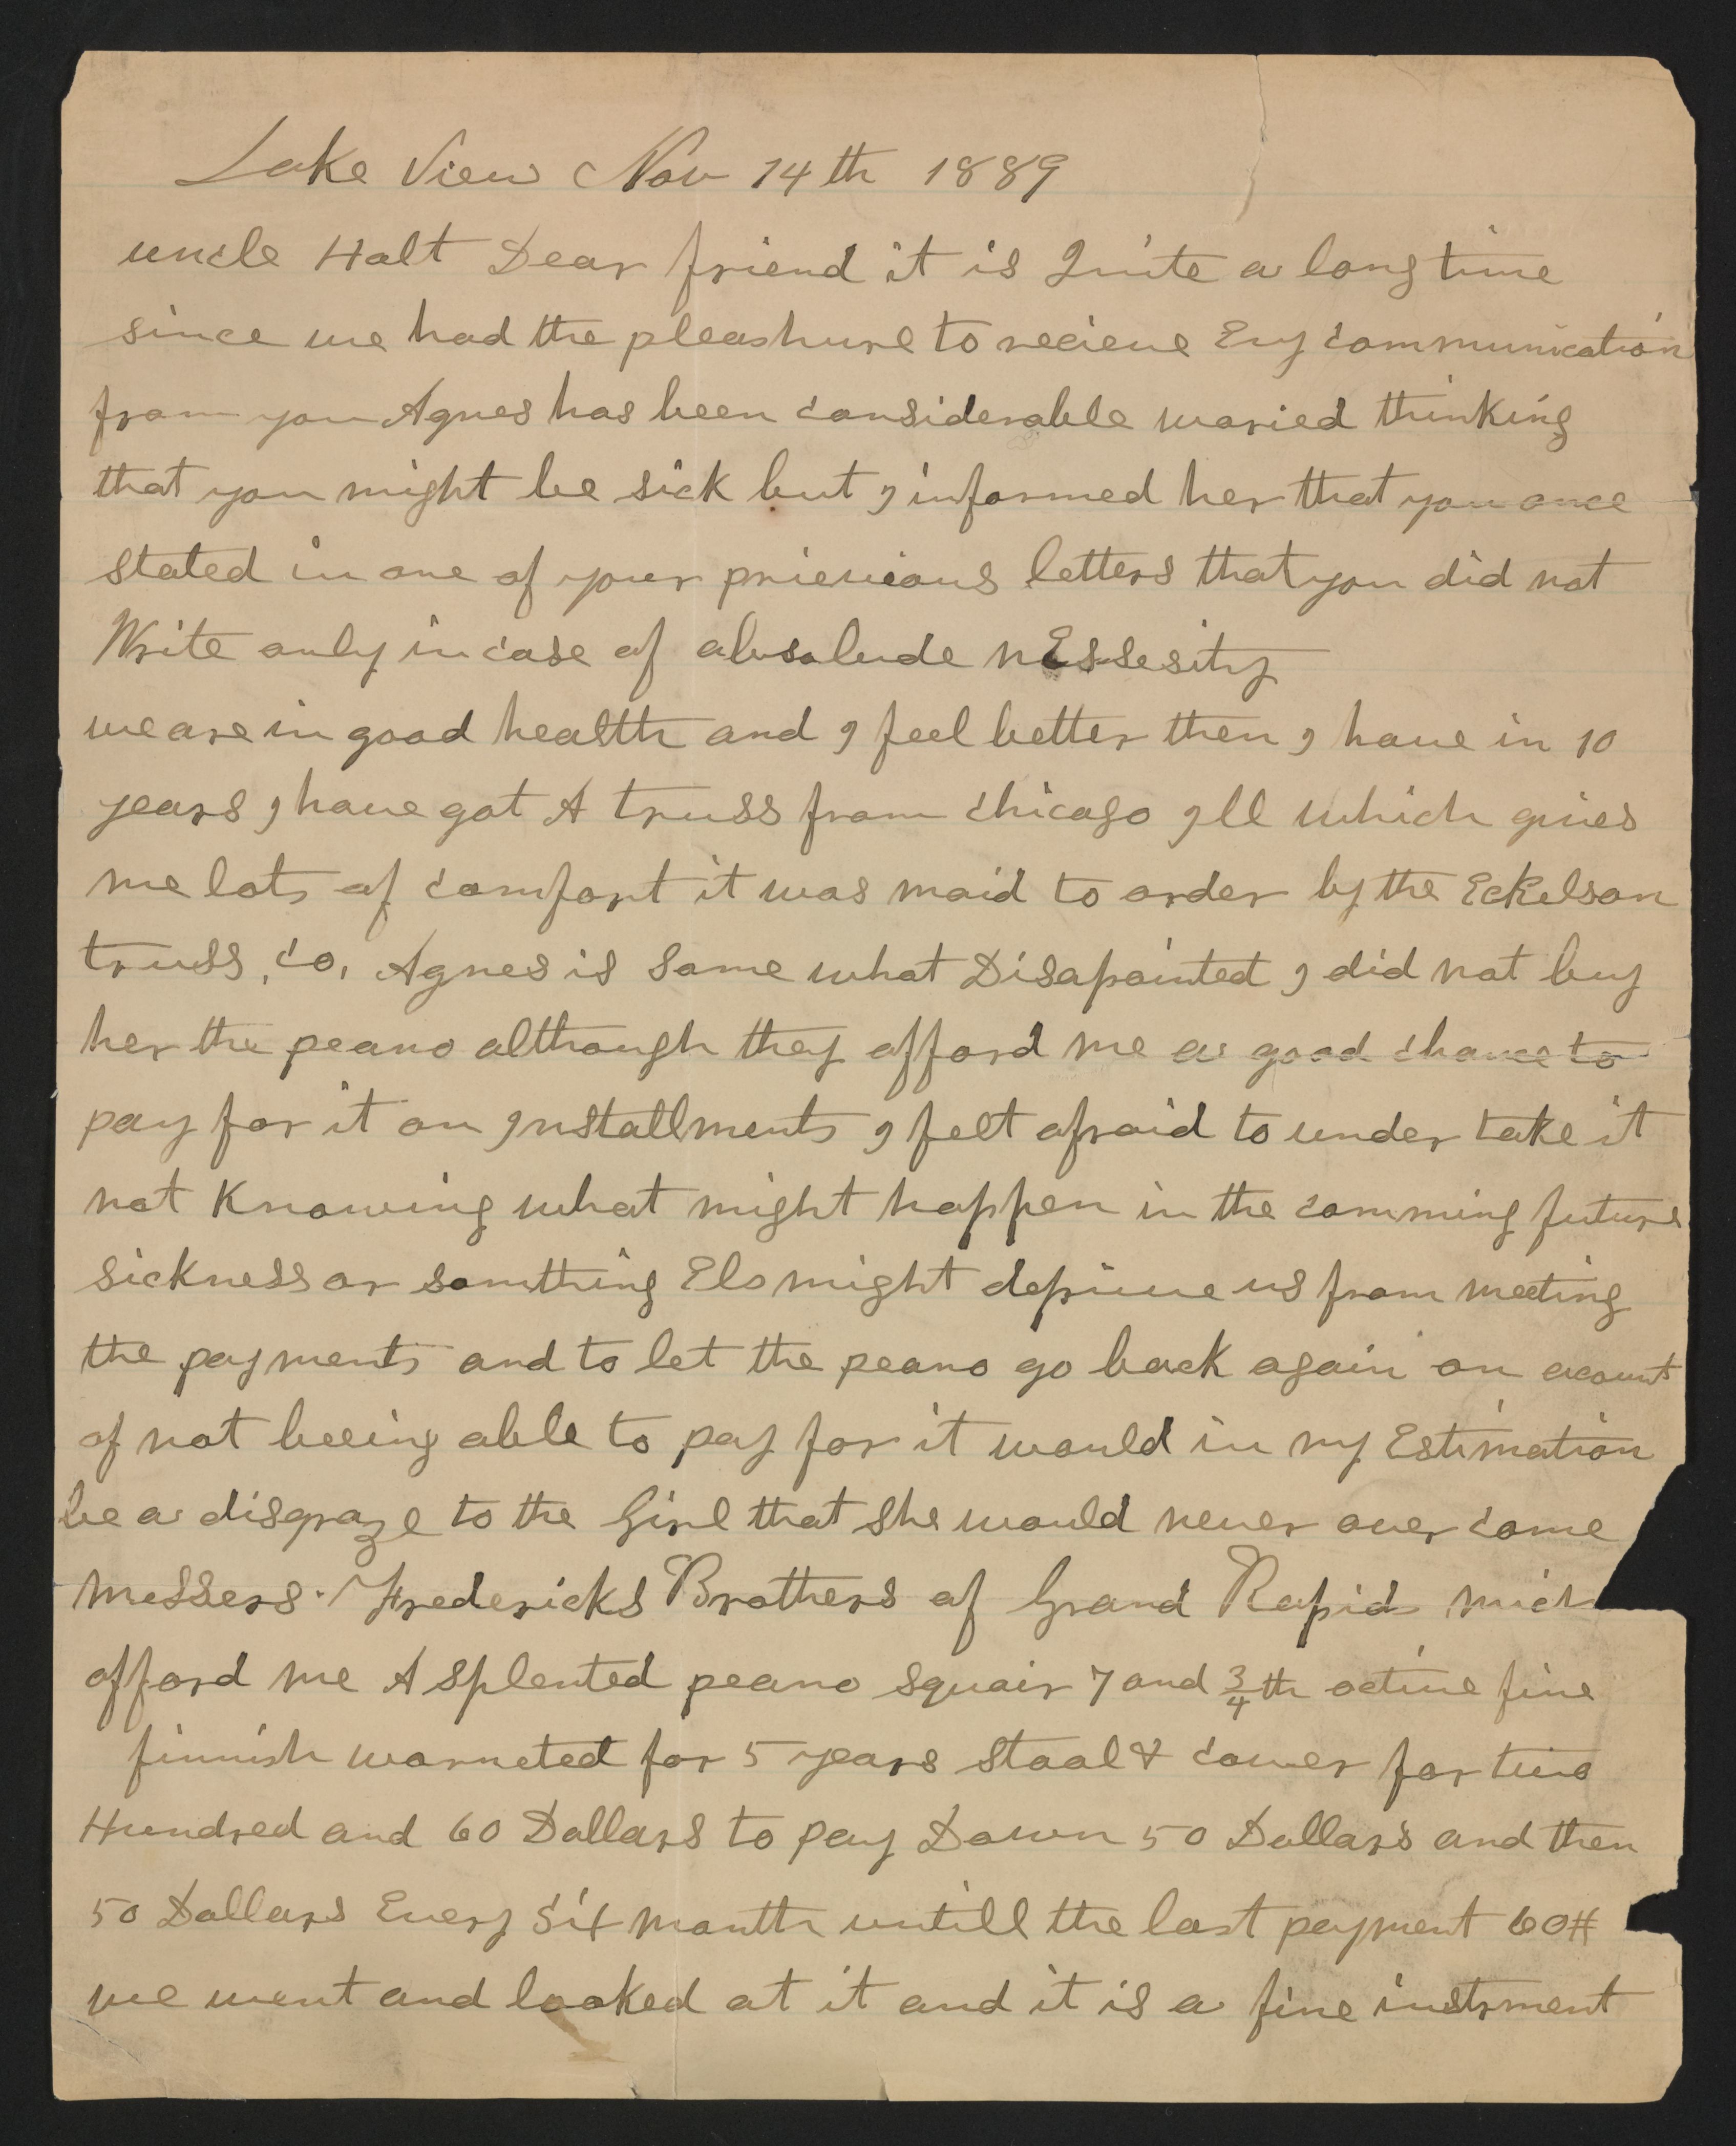 Lake View Nov 14th 1889
uncle Halt Dear friend it is Quite a long time
since we had the pleashure to recieve Eny communication
from you Agnes has been considerable waried thinking
that you might be sick but I informed her that you once
stated in one of your prievious letters that you did not
Write only in case of absolude nEssesity
we are in good health and I feel better then I have in 10
years I have got A truss from Chicago Ill which gives
me lots of comfort it was maid to order by the Eckelson
truss, Co, Agnes is some what Disapointed I did not buy
her the peano although they afford me a good chance to
pay for it on Installments I felt afraid to under take it
not Knowing what might happen in the comming future
sickness or somthing Els might deprive us from meeting
the payments and to let the peano go back again on acount
of not beeing able to pay for it would in my Estimation
be a disgraze to the Girl that she would never over come
Messers. Fredericks Brothers of Grand Rapids Mich
afford me A splented peano squair 7 and 3/4th octive fine
finnish warneted for 5 years stool & cower for two
Hundred and 60 Dollars to pay Down 50 Dollars and then
50 Dollars Every Six month untill the last payment 60#
we went and looked at it and it is a fine instrment